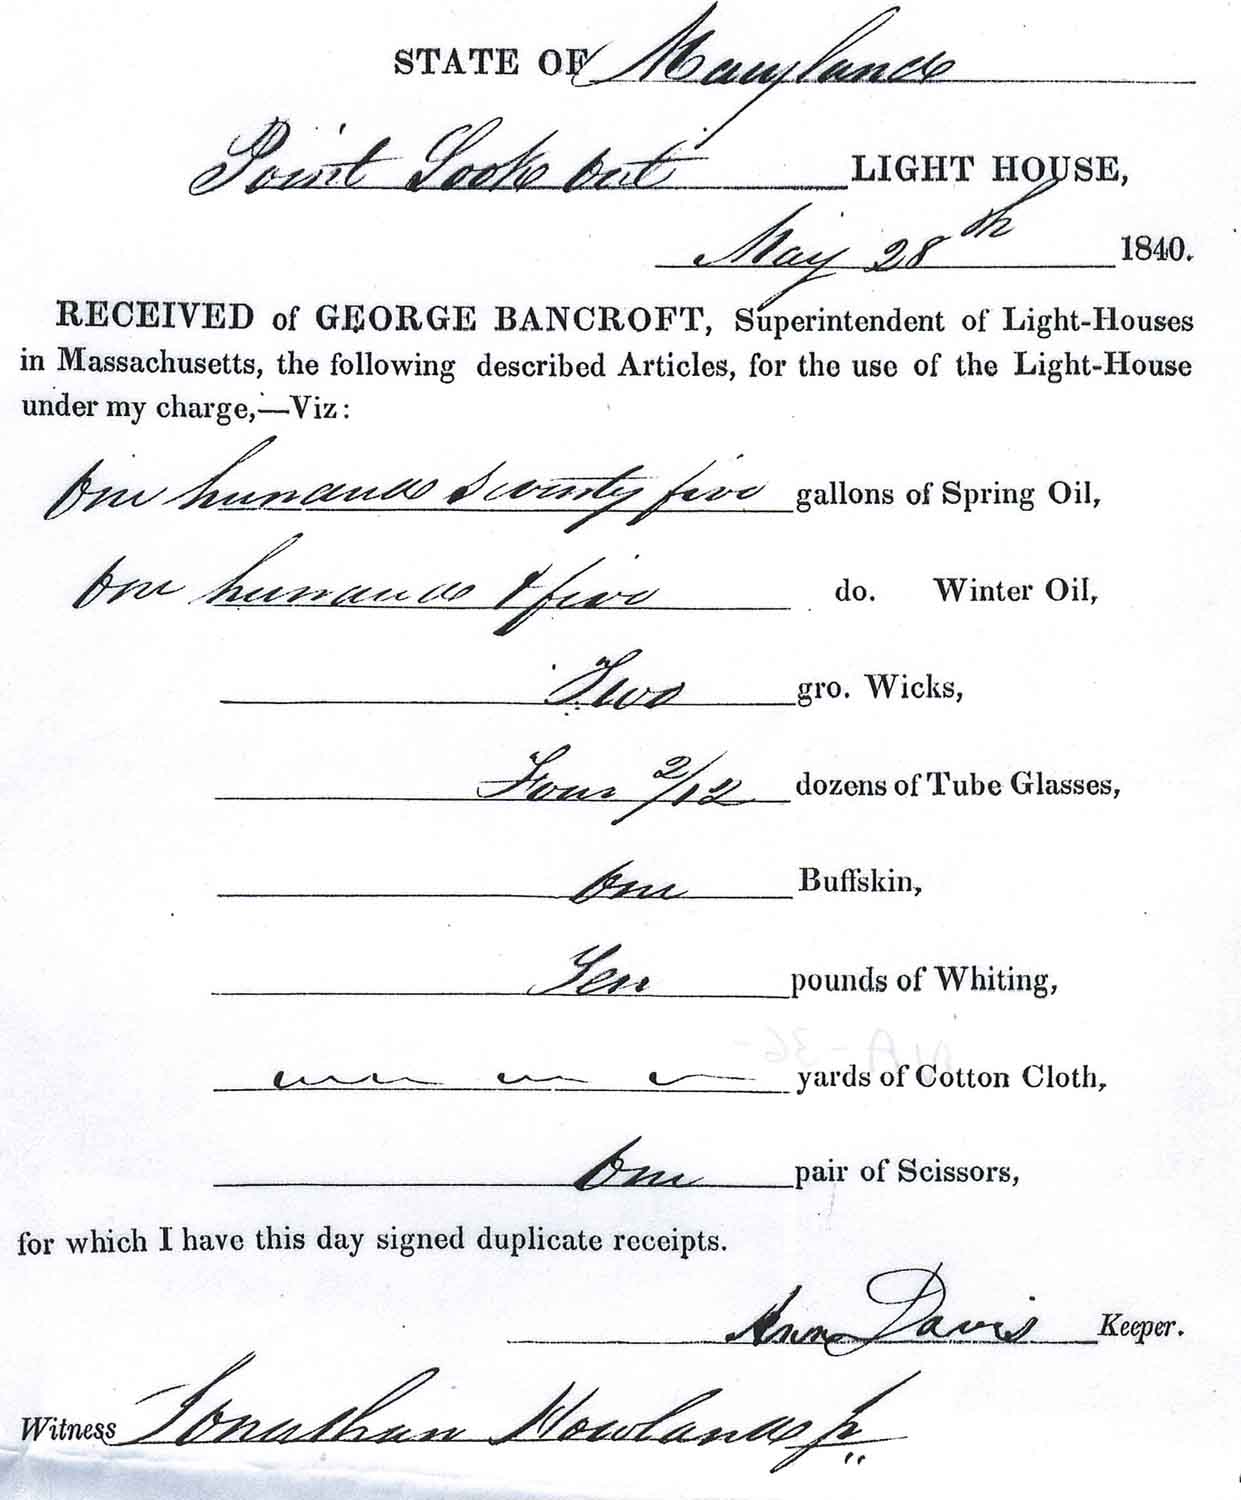 STATE OF Maryland
Point Look out LIGHT HOUSE,
May 28th 1840.
RECEIVED of GEORGE BANCROFT, Superintendent of Light-Houses
in Massachusetts, the following described Articles, for the use of the Light-House
under my charge,—Viz:
One hundred Seventy five gallons of Spring Oil,
One hundred & five do. Winter Oil,
Two gro. Wicks,
Four 2/12 dozens of Tube Glasses,
One Buffskin,
Ten pounds of Whiting,
yards of Cotton Cloth,
One pair of Scissors,
for which I have this day signed duplicate receipts.
Ann Davis Keeper.
Witness Jonathan Howland Jr
NA-36-